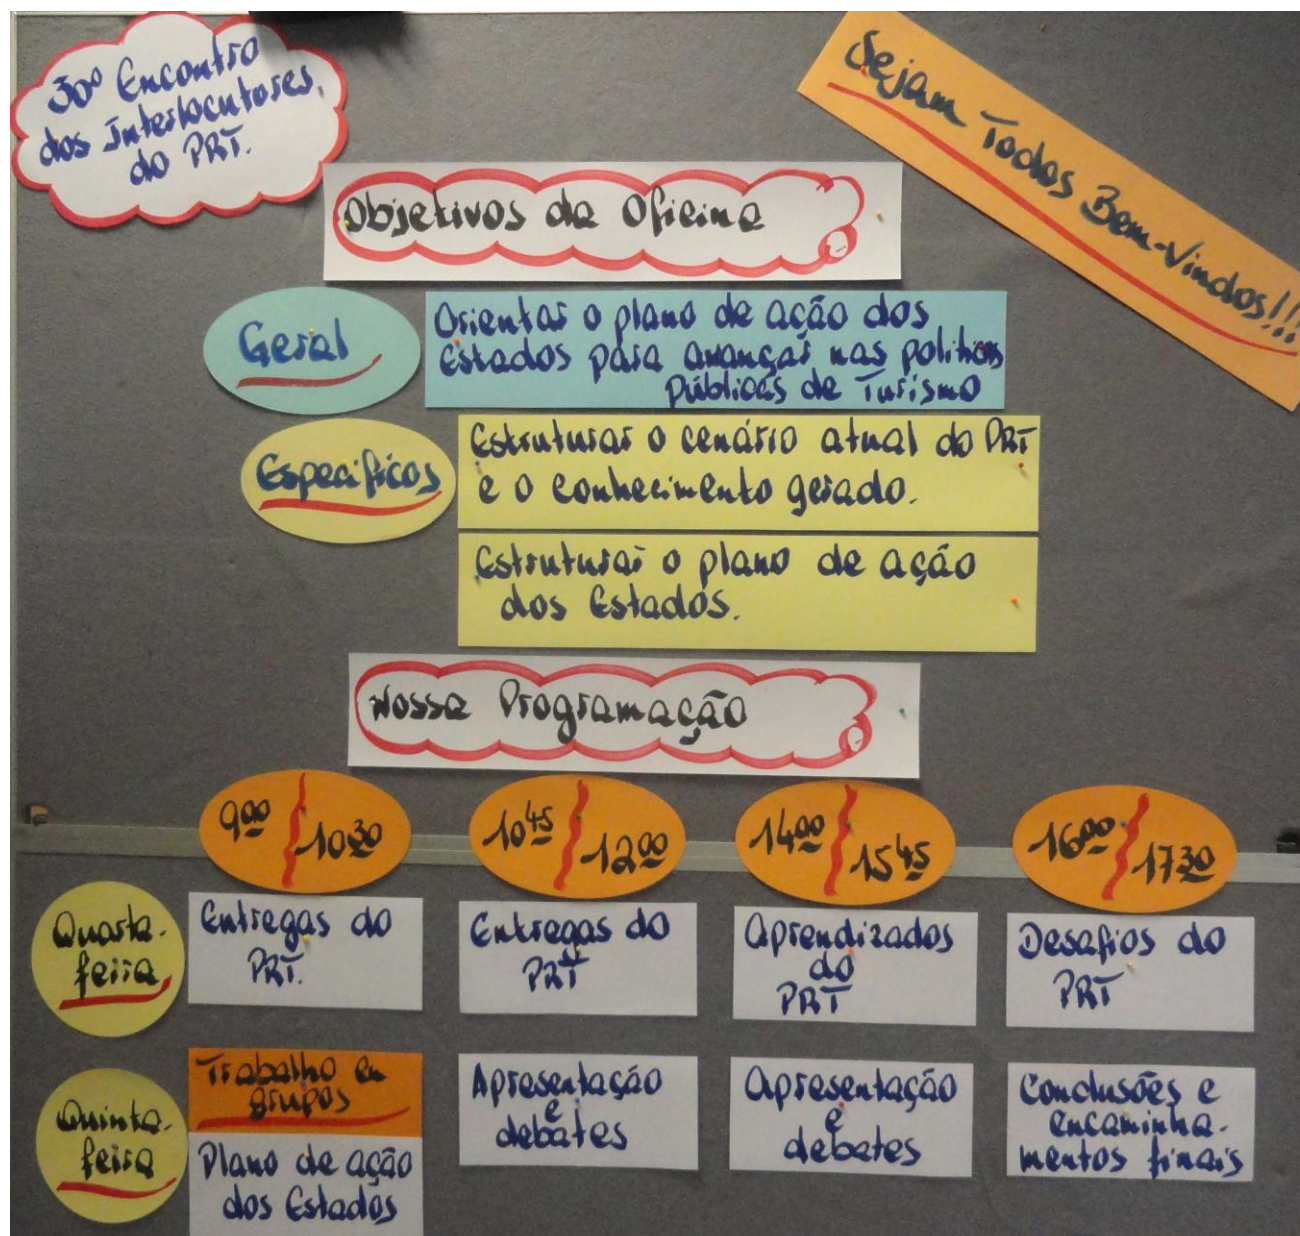 30º Encontro
dos Interlocutores
do PRT.
Sejam Todos Bem-Vindos!!!
Objetivos da Oficina
Geral
Orientar o plano de ação dos
Estados para avançar nas políticas
públicas de Turismo
Específicos
Estruturar o cenário atual do PRT
e o conhecimento gerado.
Estruturar o plano de ação
dos Estados.
Nossa Programação
9:00 / 10:30
10:45 / 12:00
14:00 / 15:45
16:00 / 17:30
Quarta-
feira
Entregas do
PRT.
Entregas do
PRT
Aprendizados
do
PRT
Desafios do
PRT
Quinta-
feira
Trabalho em
grupos
Plano de ação
dos Estados
Apresentação
e
debates
Apresentação
e
debates
Conclusões e
encaminha-
mentos finais